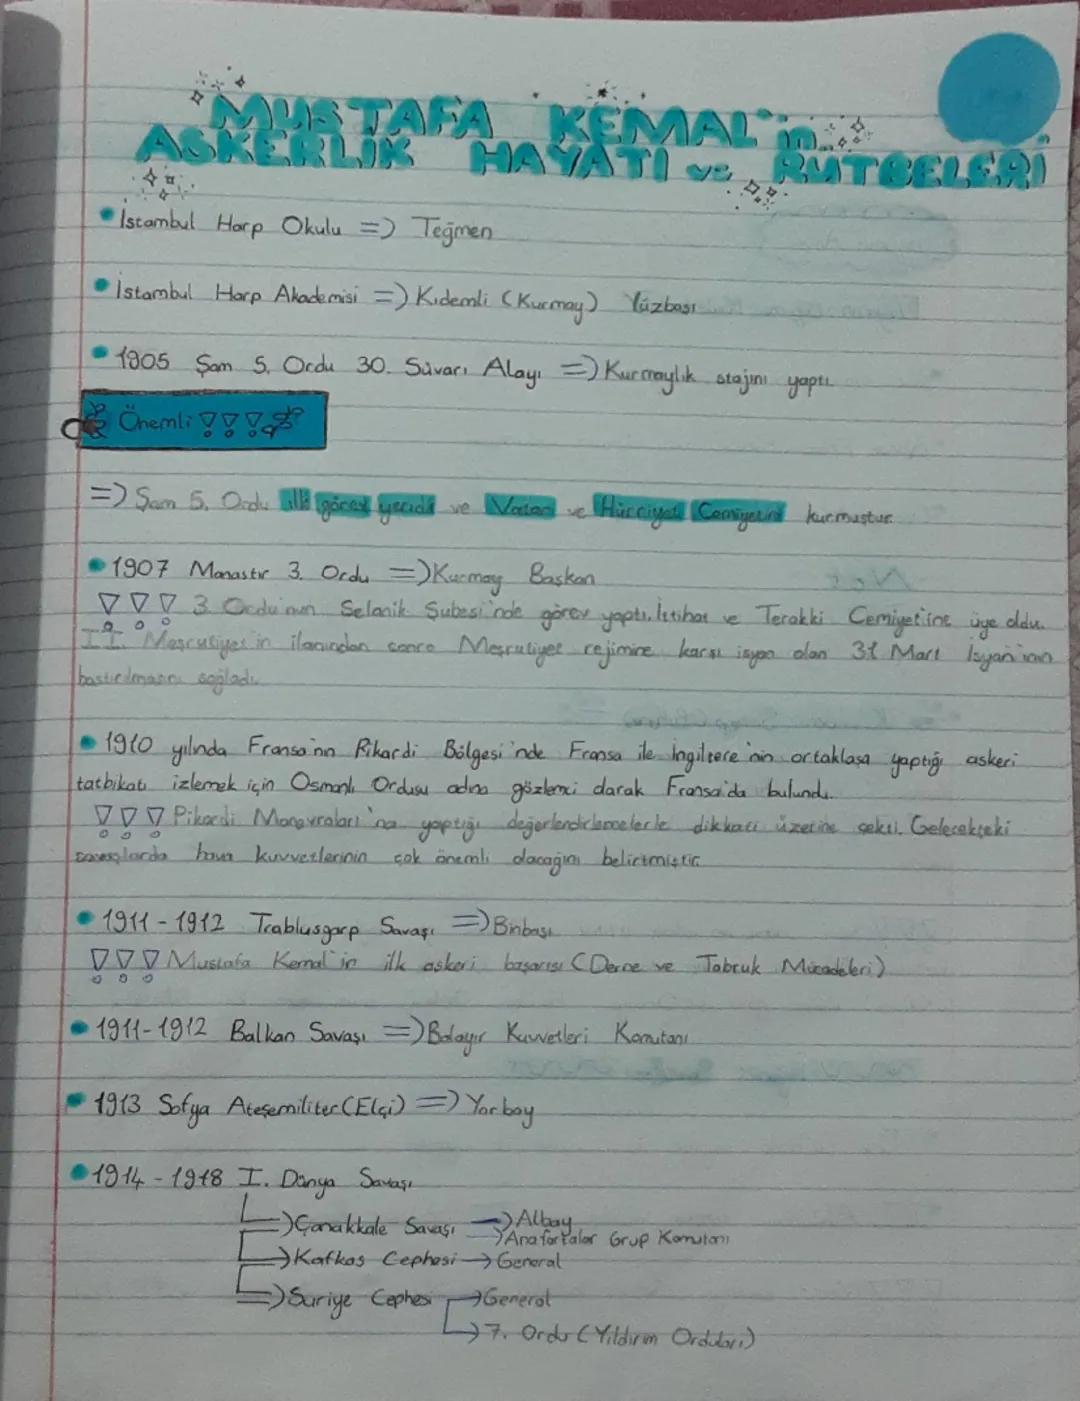 MUSTAFA KEMAL'in
ASKERLİK HAYATI ve RÜTBELERİ
İstambul Harp Okulu => Teğmen
İstambul Harp Akademisi => Kıdemli (Kurmay) Yüzbaşı
1905 Şam 5. Ordu 30. Süvari Alayı => Kurmaylık stajını yaptı.
Önemli !!!
=> Şam 5. Ordu ilk görev yeridi ve Vatan ve Hürriyet Cemiyetini kurmuştur.
1907 Manastır 3. Ordu => Kurmay Başkan
!!! 3. Ordu'nun Selanik Şubesi'nde görev yaptı. İttihat ve Terakki Cemiyetine üye oldu.
II. Meşrutiyet'in ilanından sonra Meşrutiyet rejimine karşı isyan olan 31 Mart İsyanının
bastırılmasını sağladı.
1910 yılında Fransa'nın Pikardi Bölgesi'nde Fransa ile İngiltere'nin ortaklaşa yaptığı askeri
tatbikatı izlemek için Osmanlı Ordusu adına gözlemci olarak Fransa'da bulundu.
!!! Pikardi Manevraları'na yaptığı değerlendirlemelerle dikkati üzerine çekti. Gelecekteki
savaşlarda hava kuvvetlerinin çok önemli olacağını belirtmiştir.
1911-1912 Trablusgarp Savaşı => Binbaşı
!!! Mustafa Kemal'in ilk askeri başarısı (Derne ve Tobruk Mücadeleri)
1911-1912 Balkan Savaşı => Bolayır Kuvvetleri Komutanı
1913 Sofya Ateşemiliter (Elçi) => Yarbay
1914-1918 I. Dünya Savaşı
=> Çanakkale Savaşı → Albay
→ Anafartalar Grup Komutanı
=> Kafkas Cephesi → General
=> Suriye Cephesi → General
→ 7. Ordu (Yıldırım Orduları)